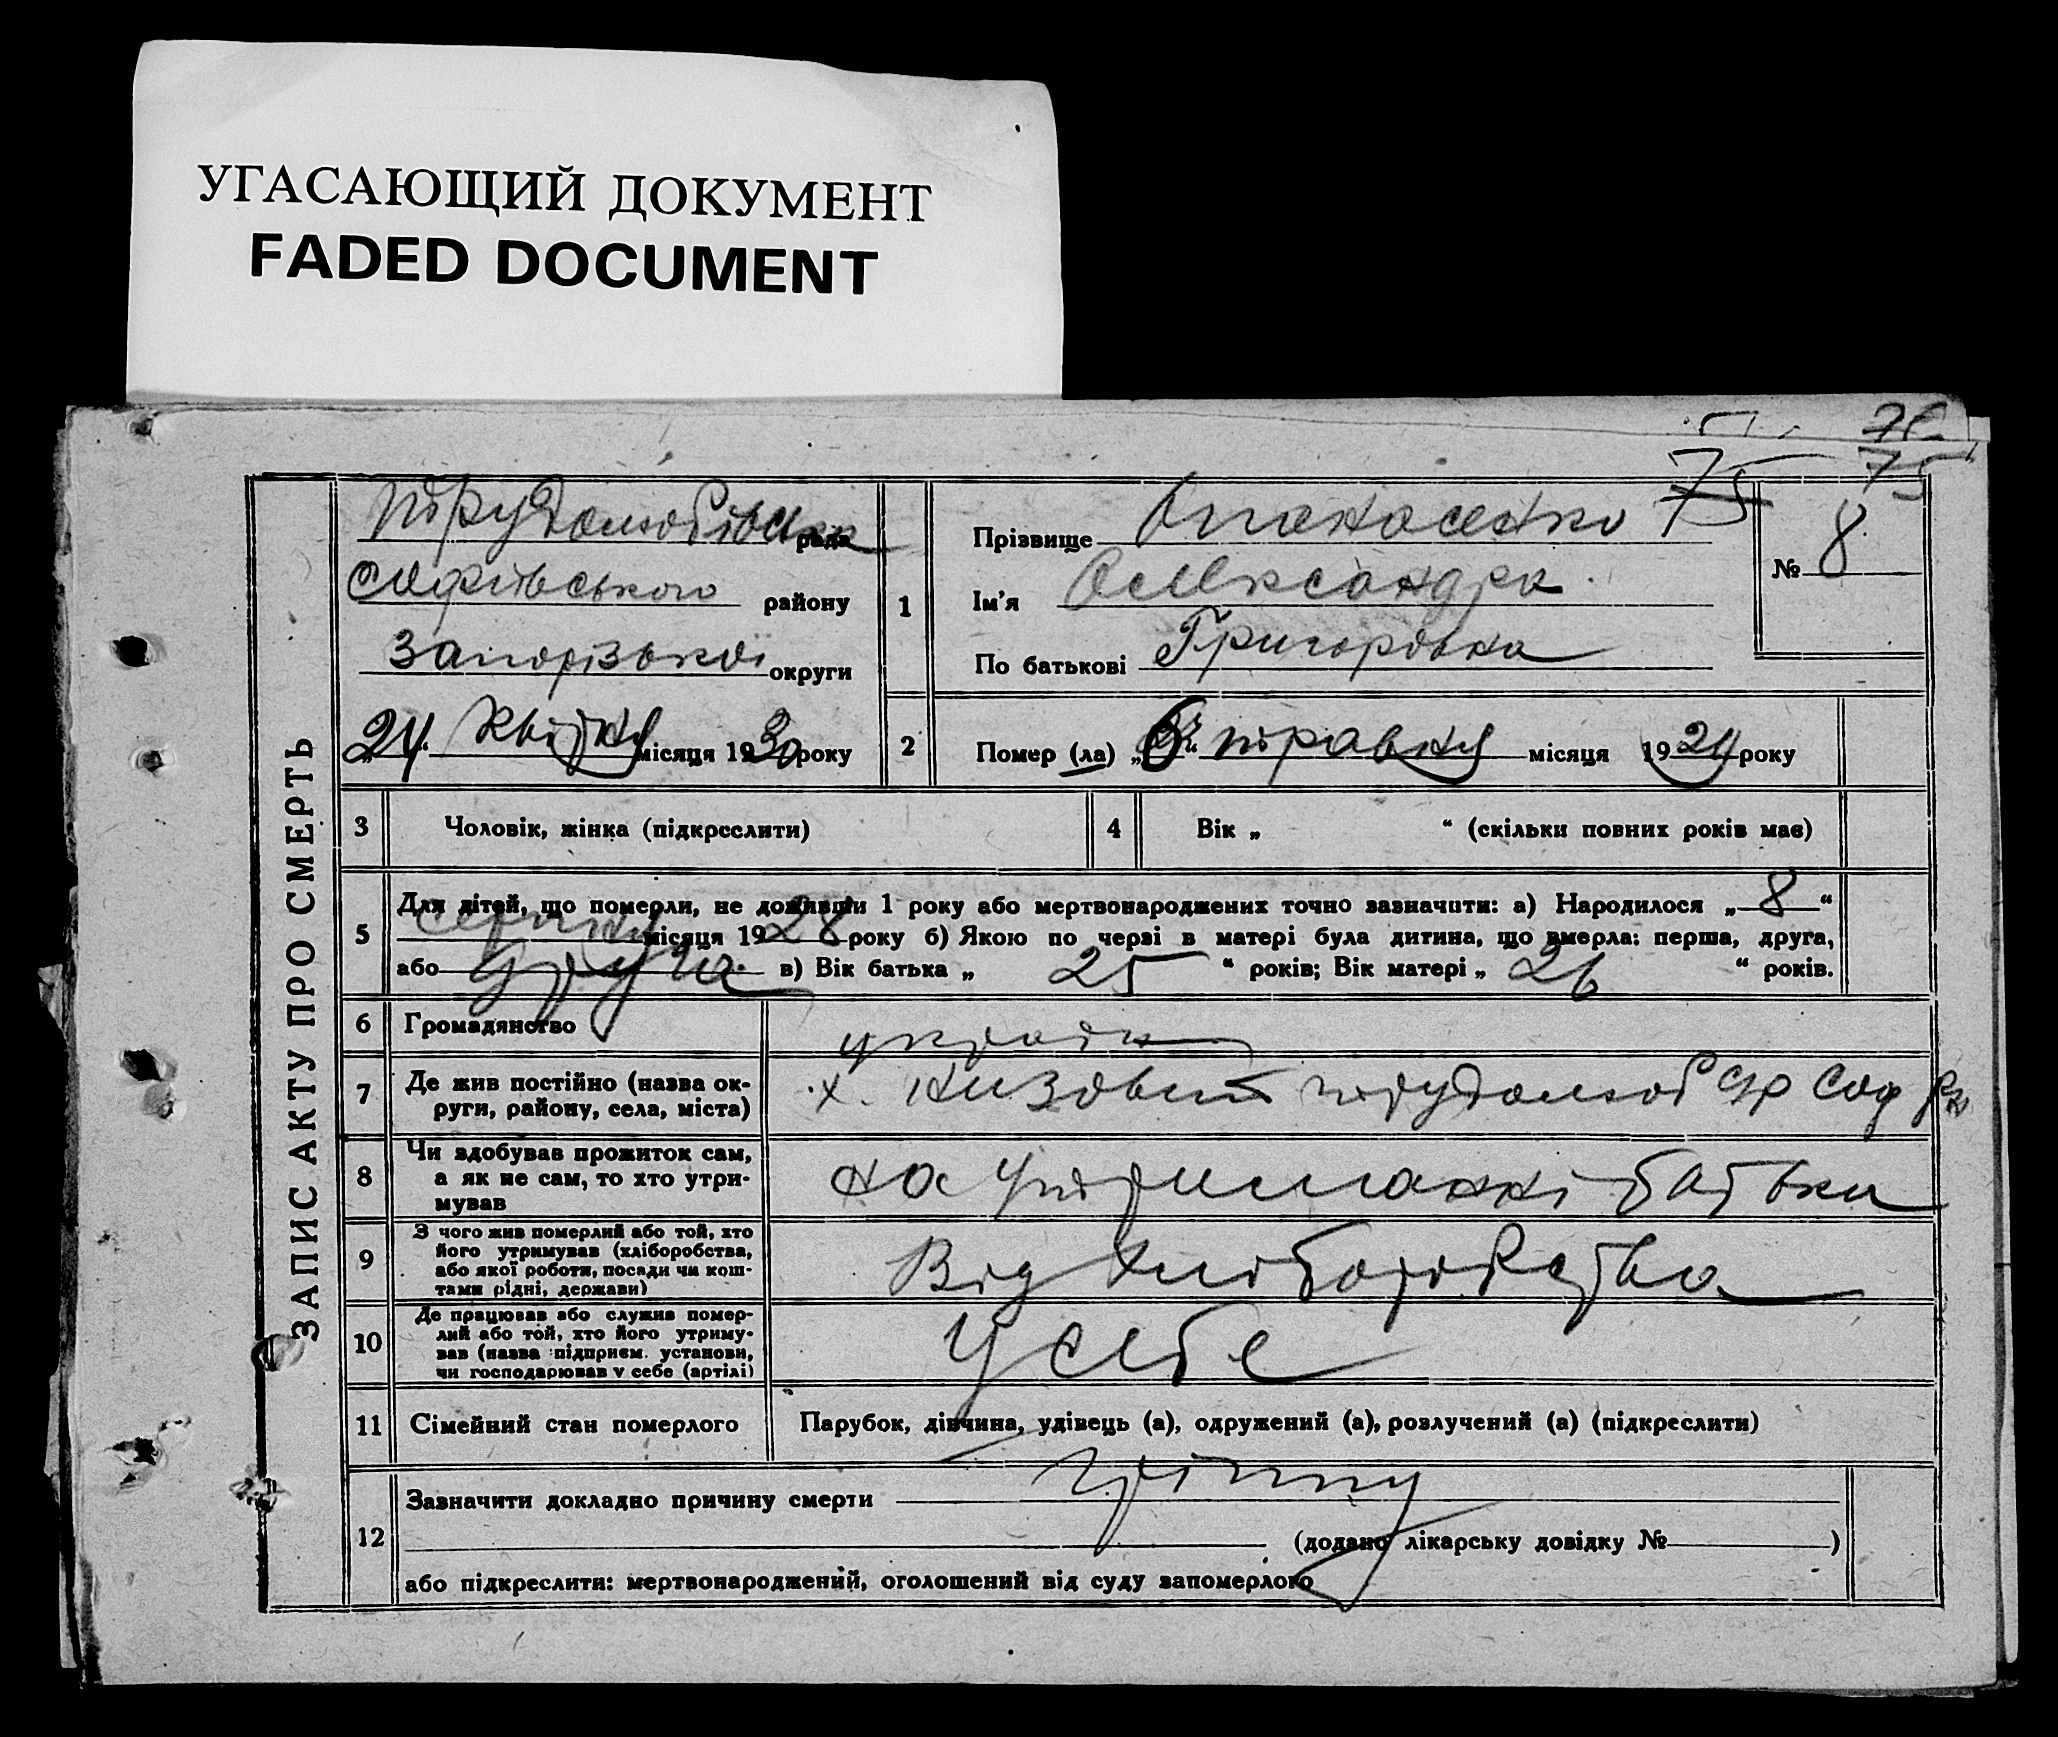 УГАСАЮЩИЙ ДОКУМЕНТ
FADED DOCUMENT
75
75
ЗАПИС АКТУ ПРО СМЕРТЬ
Трудолюбівська рада
Софіївського району
Запорізької округи
„24“ Квітня місяця 1930 року
1
Прізвище Опанасенко
Ім'я Олександра
По батькові Григорівна
№ 8
2
Помер (ла) травня місяця 1929 року
3 Чоловік, жінка (підкреслити)
4 Вік „ “ (скільки повних років мав)
5 Для дітей, що померли, не доживши 1 року або мертвонароджених точно зазначити: а) Народилося „8“
серпня місяця 1928 року б) Якою по черзі в матері була дитина, що вмерла: перша, друга,
або друга в) Вік батька „25“ років; Вік матері „26“ років.
6 Громадянство
7 Де жив постійно (назва округи, району, села, міста) х. Низовий Трудолюб с/р Соф р-н
8 Чи здобував прожиток сам,
а як не сам, то хто утри-
мував
на утриманні батька
9 З чого жив померлий або той, хто
його утримував (хліборобства,
або якої роботи, посади чи кош-
тами рідні, держави)
Від хліборобства
10 Де працював або служив помер-
лий або той, хто його утриму-
вав (назва підприєм. установи,
чи господарював у себе (артілі)
У себе
11 Сімейний стан померлого Парубок, дівчина, удівець (а), одружений (а), розлучений (а) (підкреслити)
12 Зазначити докладно причину смерти грипу
(додано лікарську довідку № )
або підкреслити: мертвонароджений, оголошений від суду запомерлого